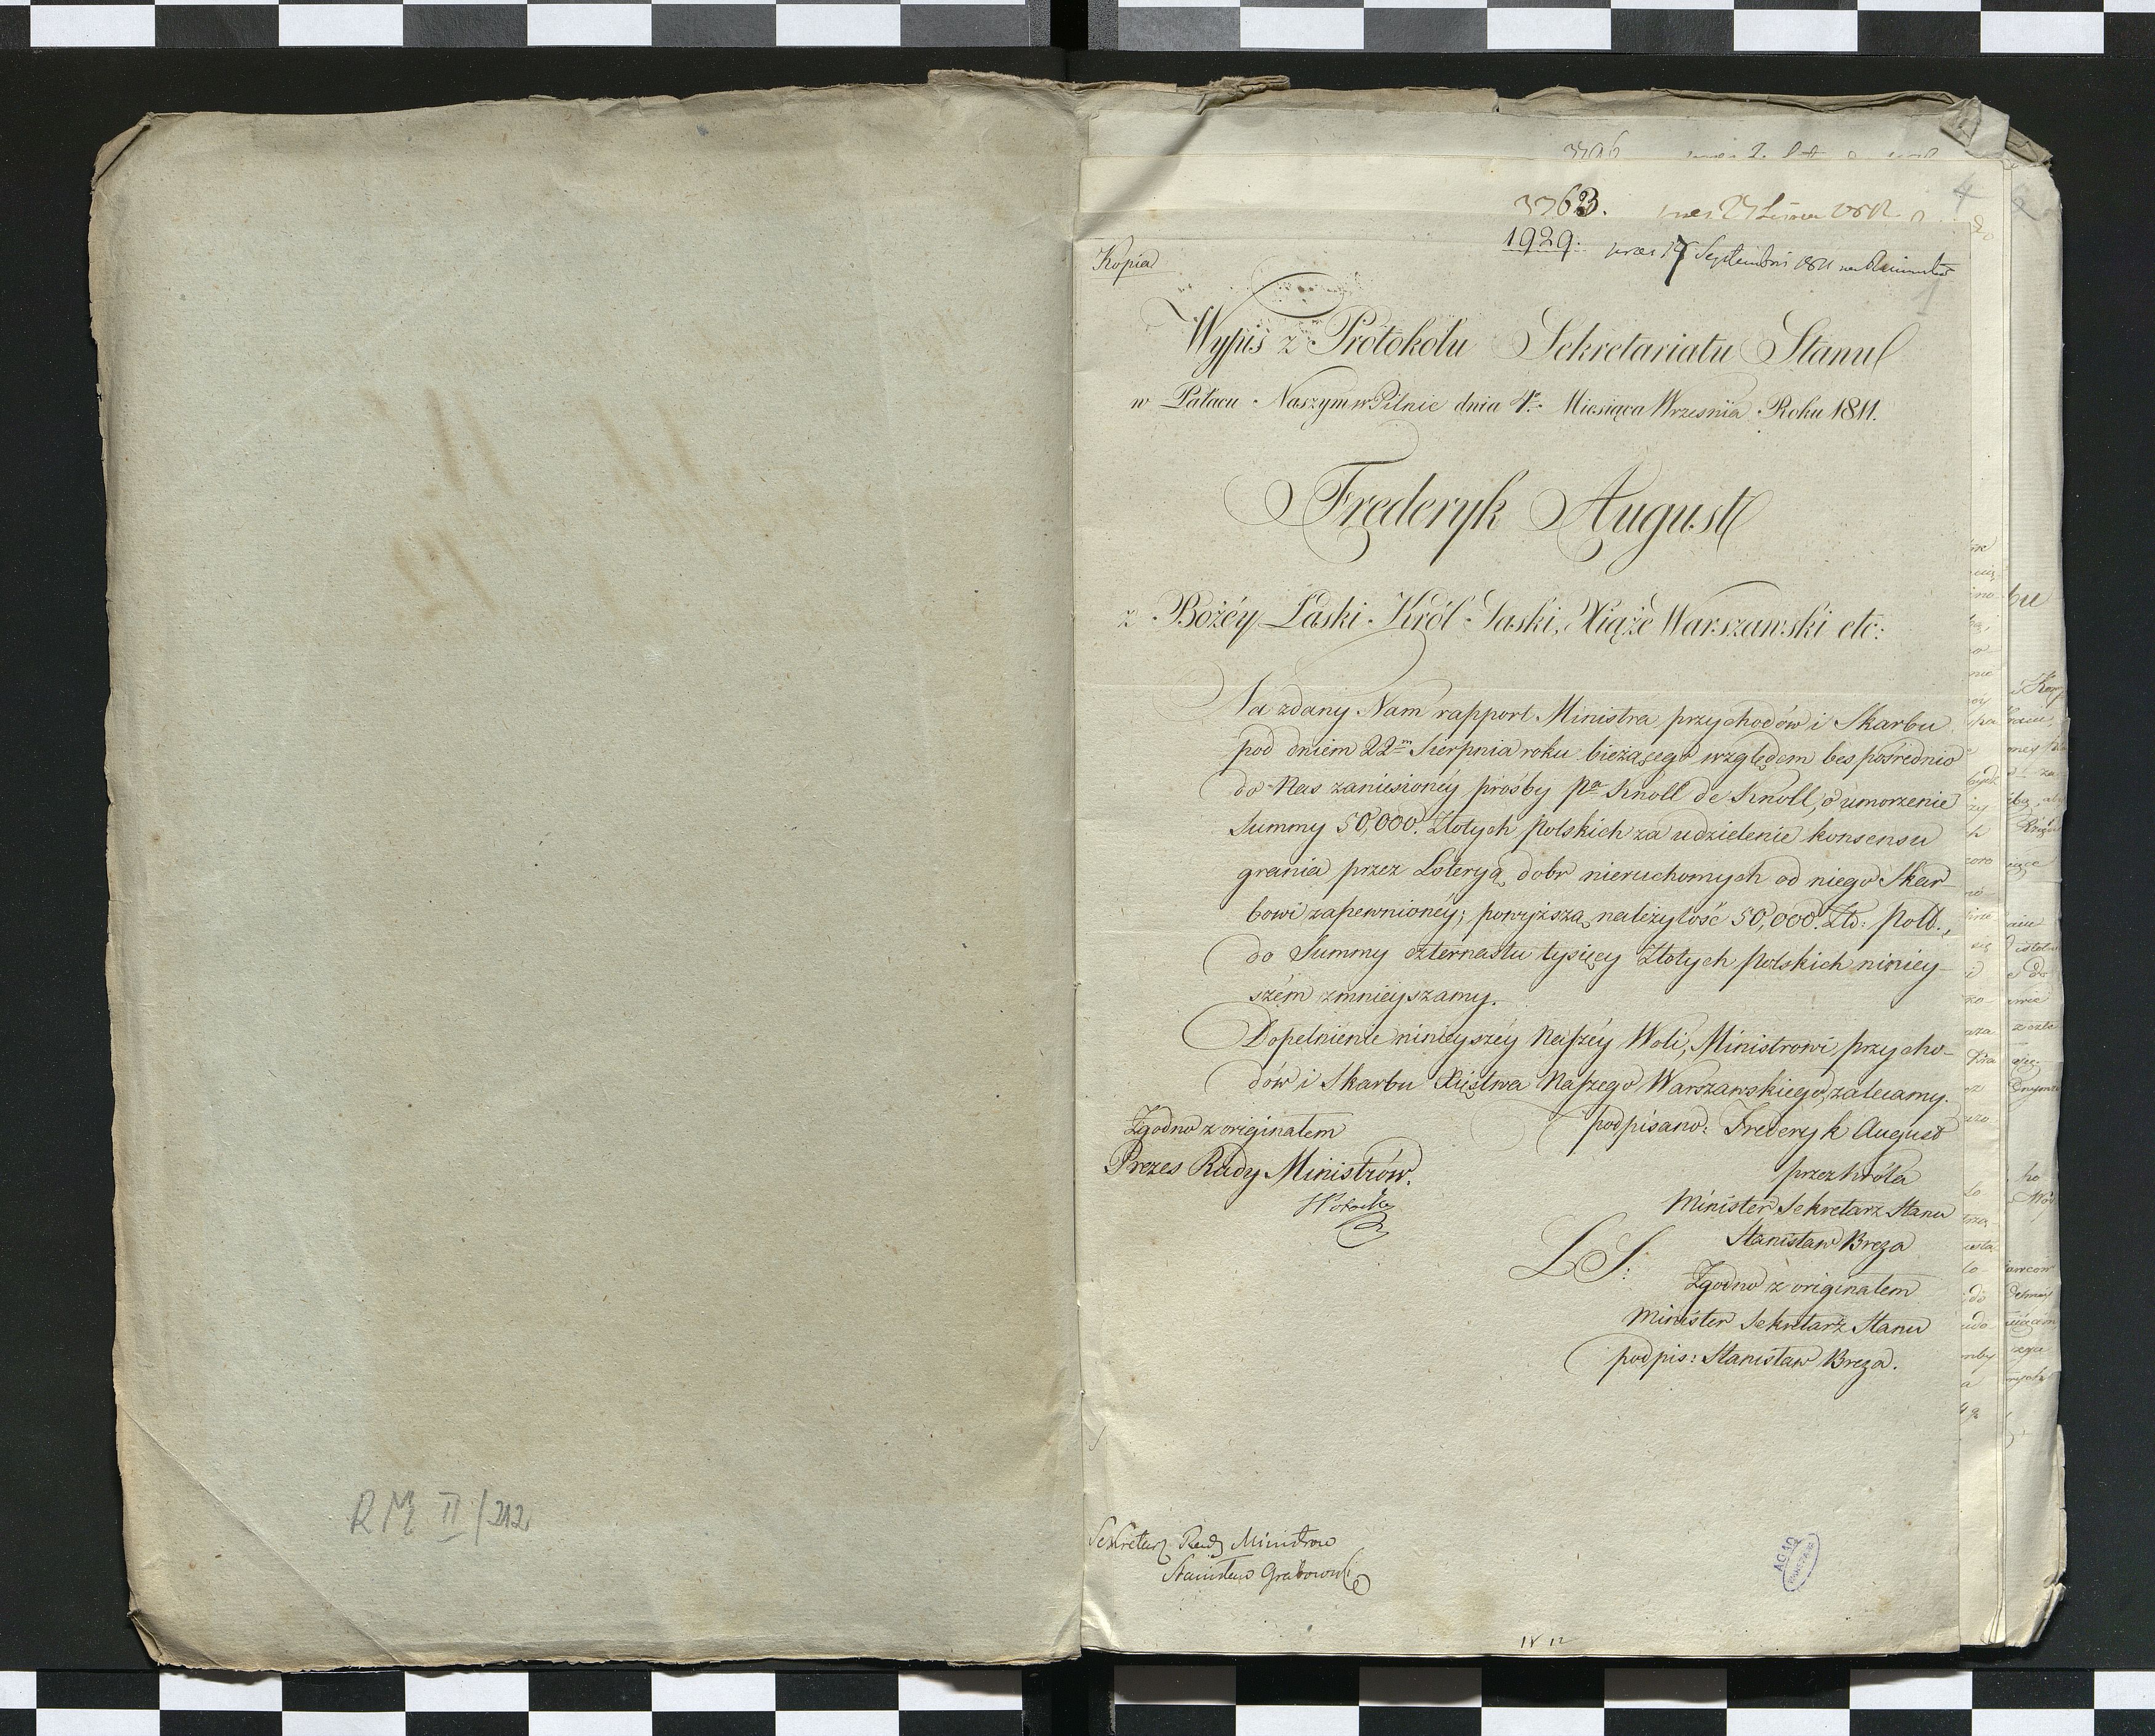 3763.
1929.
Kopia
Septembris
1
Wypis z Protokółu Sekretariatu Stanu
w Pałacu Naszym w Pilnic dnia 4º Miesiąca Września Roku 1811.
Frederyk August
z Bożéy Łaski Król Saski, Xiąże Warszawski etc:
Na zdany Nam rapport Ministra przychodów i Skarbu
pod dniem 22m Sierpnia roku bieżącego względem bespośrednio
do Nas zaniesionéy prośby Pa Knoll de Knoll, o umorzenie
Summy 50,000. Złotych polskich za udzielenie konsensu
grania przez Loteryą dobr nieruchomych od niego Skar-
bowi zapewnionéy; powyższą należytość 50,000. Złt: pols.,
do Summy czternastu tysięcy Złotych polskich niniey-
szém zmnieyszamy.
Dopełnienie ninieyszéy Naszéy Woli, Ministrowi przycho-
dów i Skarbu Xięstwa Naszego Warszawskiego, zalecamy.
podpisano: Frederyk August
przez Króla
Minister Sekretarz Stanu
Stanisław Breza
L S:
Zgodno z originałem
Minister Sekretarz Stanu
podpis: Stanisław Breza.
Zgodno z originałem
Prezes Rady Ministrów.
Sekretarz Rady Ministrow
Stanisław Grabowski
RM II/212